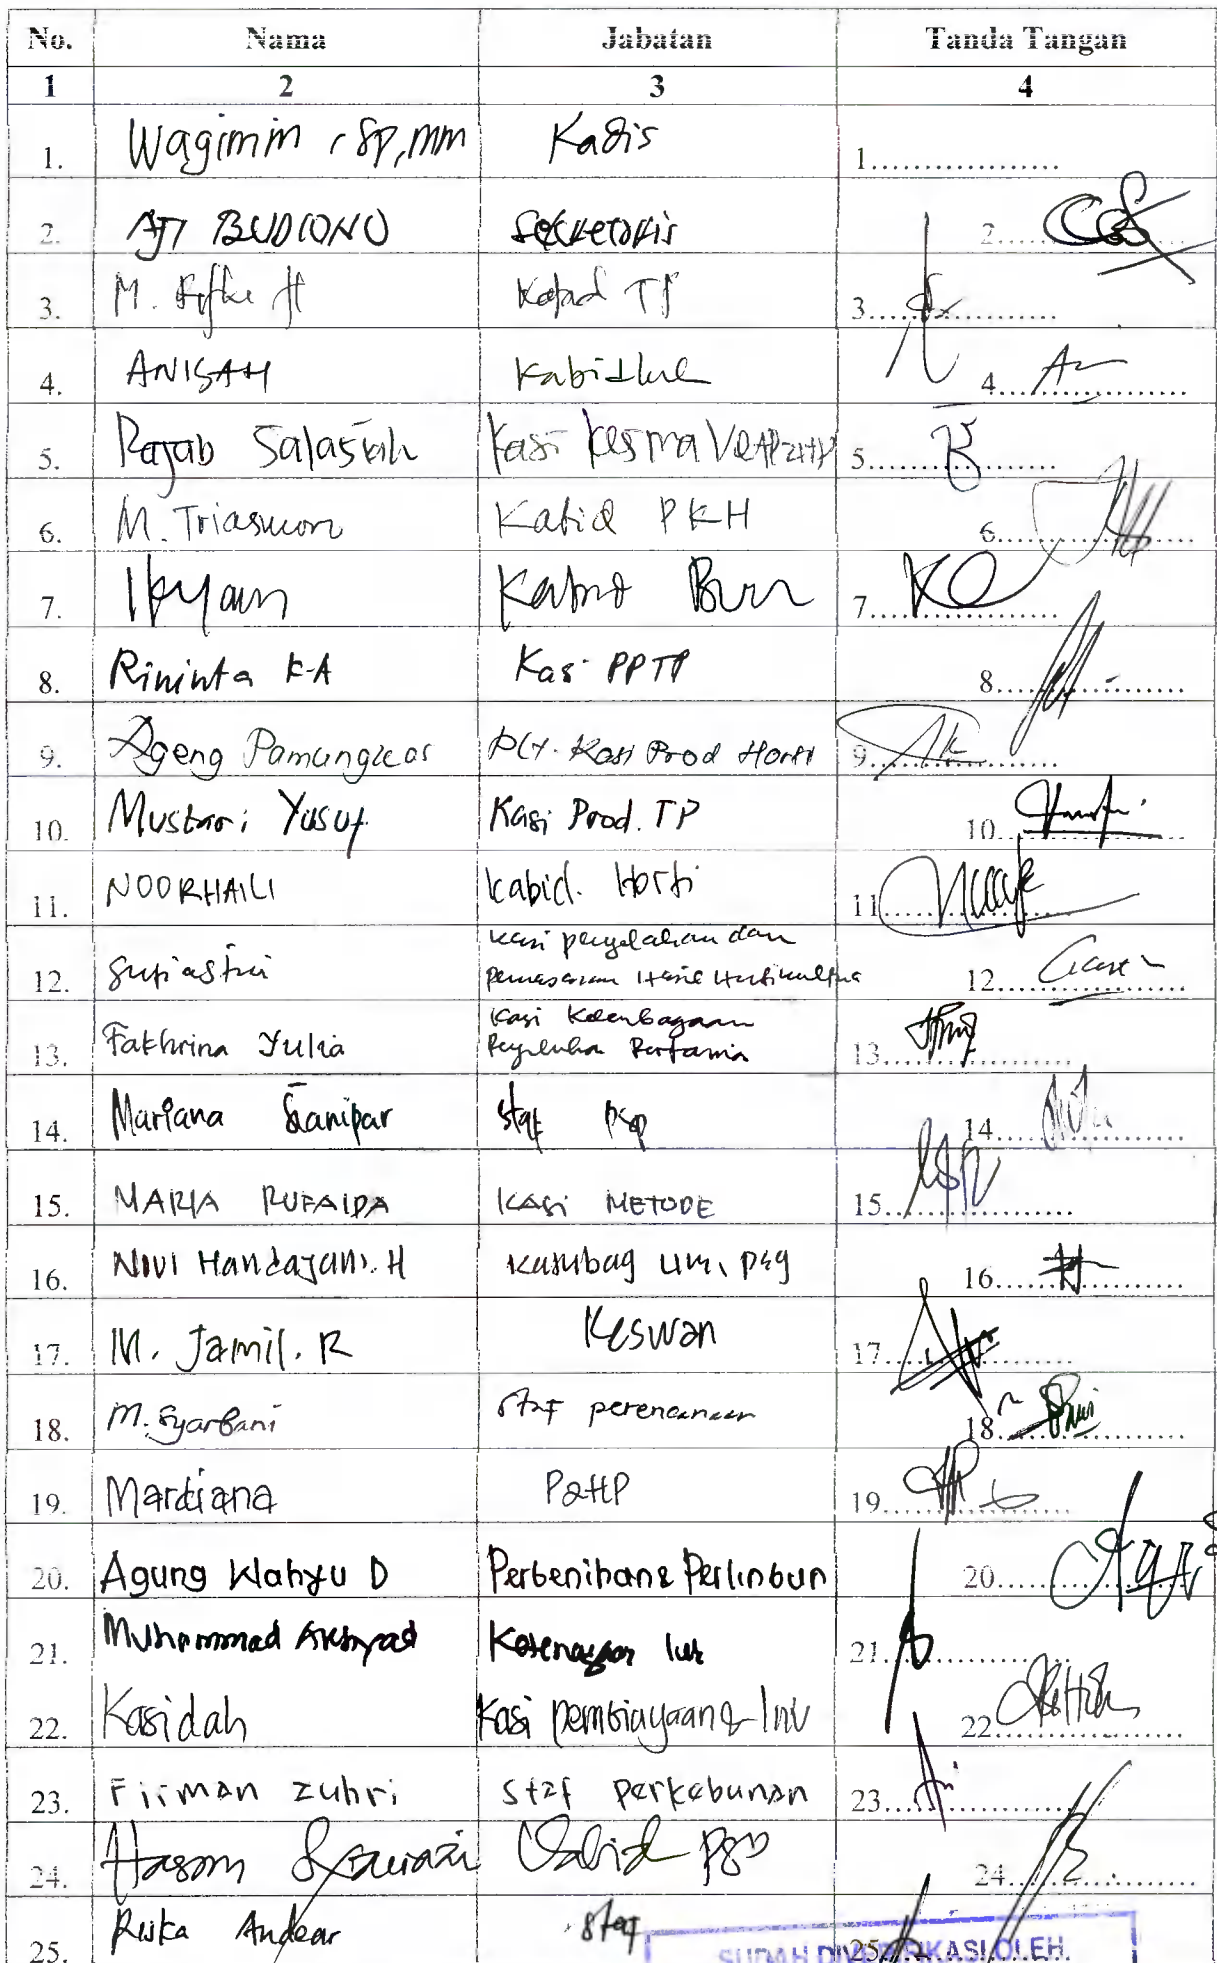 No. Nama Jabatan Tanda Tangan
1 2 3 4
1. Wagimin, SP, MM Kadis 1..................
2. AJI BUDIONO Sekretaris 2..................
3. M. H Kabid TP 3..................
4. ANISAH Kabidluh 4..................
5. Rajab Salasiah Kasi Kesmavet 5..................
6. M. Kabid PKH 6..................
7. Kabid Bun 7..................
8. Rininta K-A Kasi PPTP 8..................
9. Ageng Pamungkas Plt. Kasi Prod Horti 9..................
10. Mustari Yusuf Kasi Prod. TP 10..................
11. NOORHAILI Kabid. Horti 11..................
12. Supiastri Kasi pengolahan dan
Pemasaran Hasil Hortikultura 12..................
13. Fakhrina Yulia Kasi Kelembagaan
Penyuluhan Pertanian 13..................
14. Mariana Sianipar Staf PSP 14..................
15. MARIA RUFAIDA KASI METODE 15..................
16. Novi Handayani. H Kasubag um, peg 16..................
17. M. Jamil. R Keswan 17..................
18. M. Syarbani Staf perencanaan 18..................
19. Mardiana P2HP 19..................
20. Agung Wahyu D Perbenihan & Perlinbun 20..................
21. Muhammad luh 21..................
22. Kasidah Kasi pembiayaan & Inv 22..................
23. Firman Zuhri Staf perkebunan 23..................
24. Hasan Kabid PSP 24..................
25. Riska Andear Staf 25..................
SUDAH DIVERIFIKASI OLEH